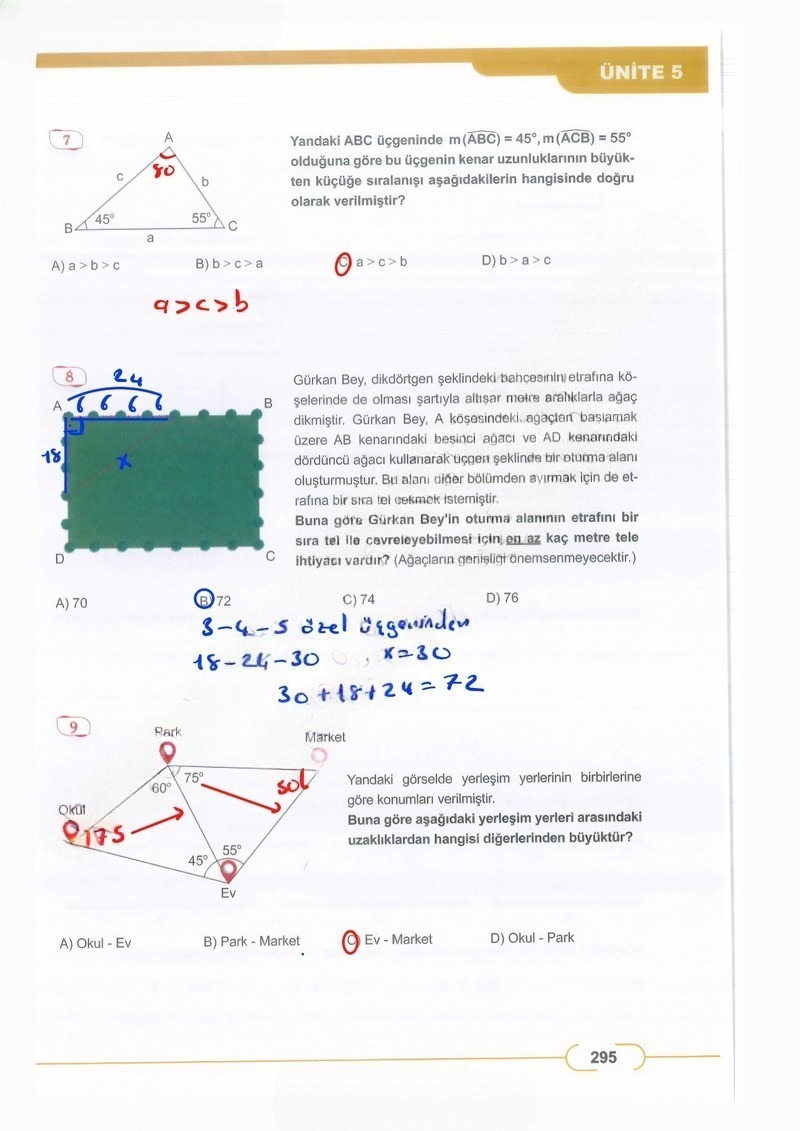 ÜNİTE 5
7
A
80
c
b
B
45º
55º
C
a
Yandaki ABC üçgeninde m(ABC) = 45º, m(ACB) = 55º
olduğuna göre bu üçgenin kenar uzunluklarının büyük-
ten küçüğe sıralanışı aşağıdakilerin hangisinde doğru
olarak verilmiştir?
A) a > b > c
B) b > c > a
C) a > c > b
D) b > a > c
a>c>b
8
24
A
6 6 6 6
B
18
x
D
C
Gürkan Bey, dikdörtgen şeklindeki bahçesinin etrafına kö-
şelerinde de olması şartıyla altışar metre aralıklarla ağaç
dikmiştir. Gürkan Bey, A köşesindeki ağaçtan başlamak
üzere AB kenarındaki beşinci ağacı ve AD kenarındaki
dördüncü ağacı kullanarak üçgen şeklinde bir oturma alanı
oluşturmuştur. Bu alanı diğer bölümden ayırmak için de et-
rafına bir sıra tel çekmek istemiştir.
Buna göre Gürkan Bey'in oturma alanının etrafını bir
sıra tel ile çevreleyebilmesi için en az kaç metre tele
ihtiyacı vardır? (Ağaçların genişliği önemsenmeyecektir.)
A) 70
B) 72
C) 74
D) 76
3-4-5 özel üçgeninden
18-24-30 , x=30
30+18+24=72
9
Park
Market
75º
60º
50
Okul
75
45º
55º
Ev
Yandaki görselde yerleşim yerlerinin birbirlerine
göre konumları verilmiştir.
Buna göre aşağıdaki yerleşim yerleri arasındaki
uzaklıklardan hangisi diğerlerinden büyüktür?
A) Okul - Ev
B) Park - Market
C) Ev - Market
D) Okul - Park
295